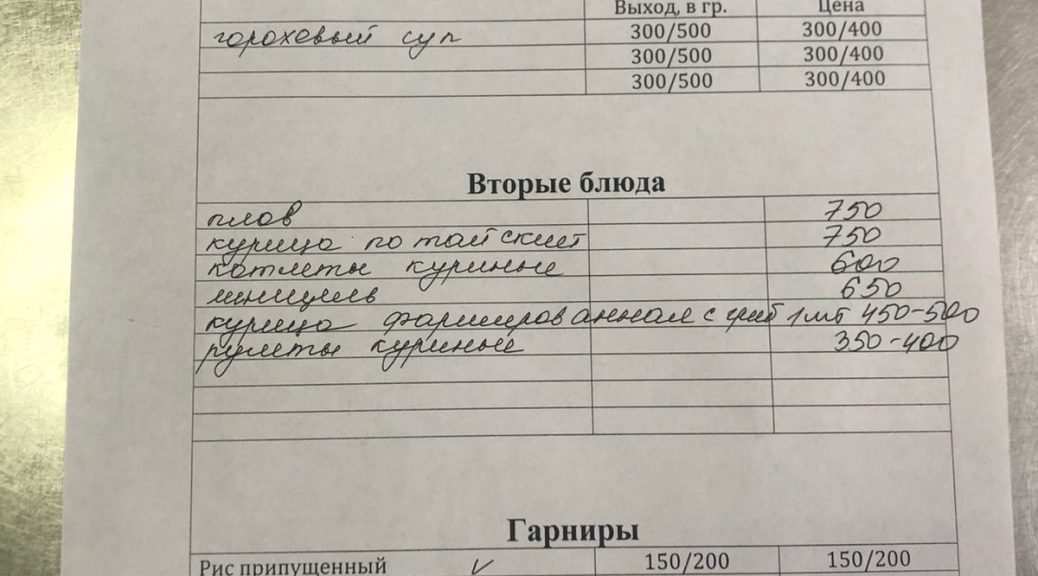 Выход, в гр. Цена
гороховый суп 300/500 300/400
300/500 300/400
300/500 300/400
Вторые блюда
плов 750
курица по тайски 750
котлеты куриные 600
шницель 650
курица фаршированная с гриб 1шт 450-500
рулеты куриные 350-400
Гарниры
Рис припущенный V 150/200 150/200